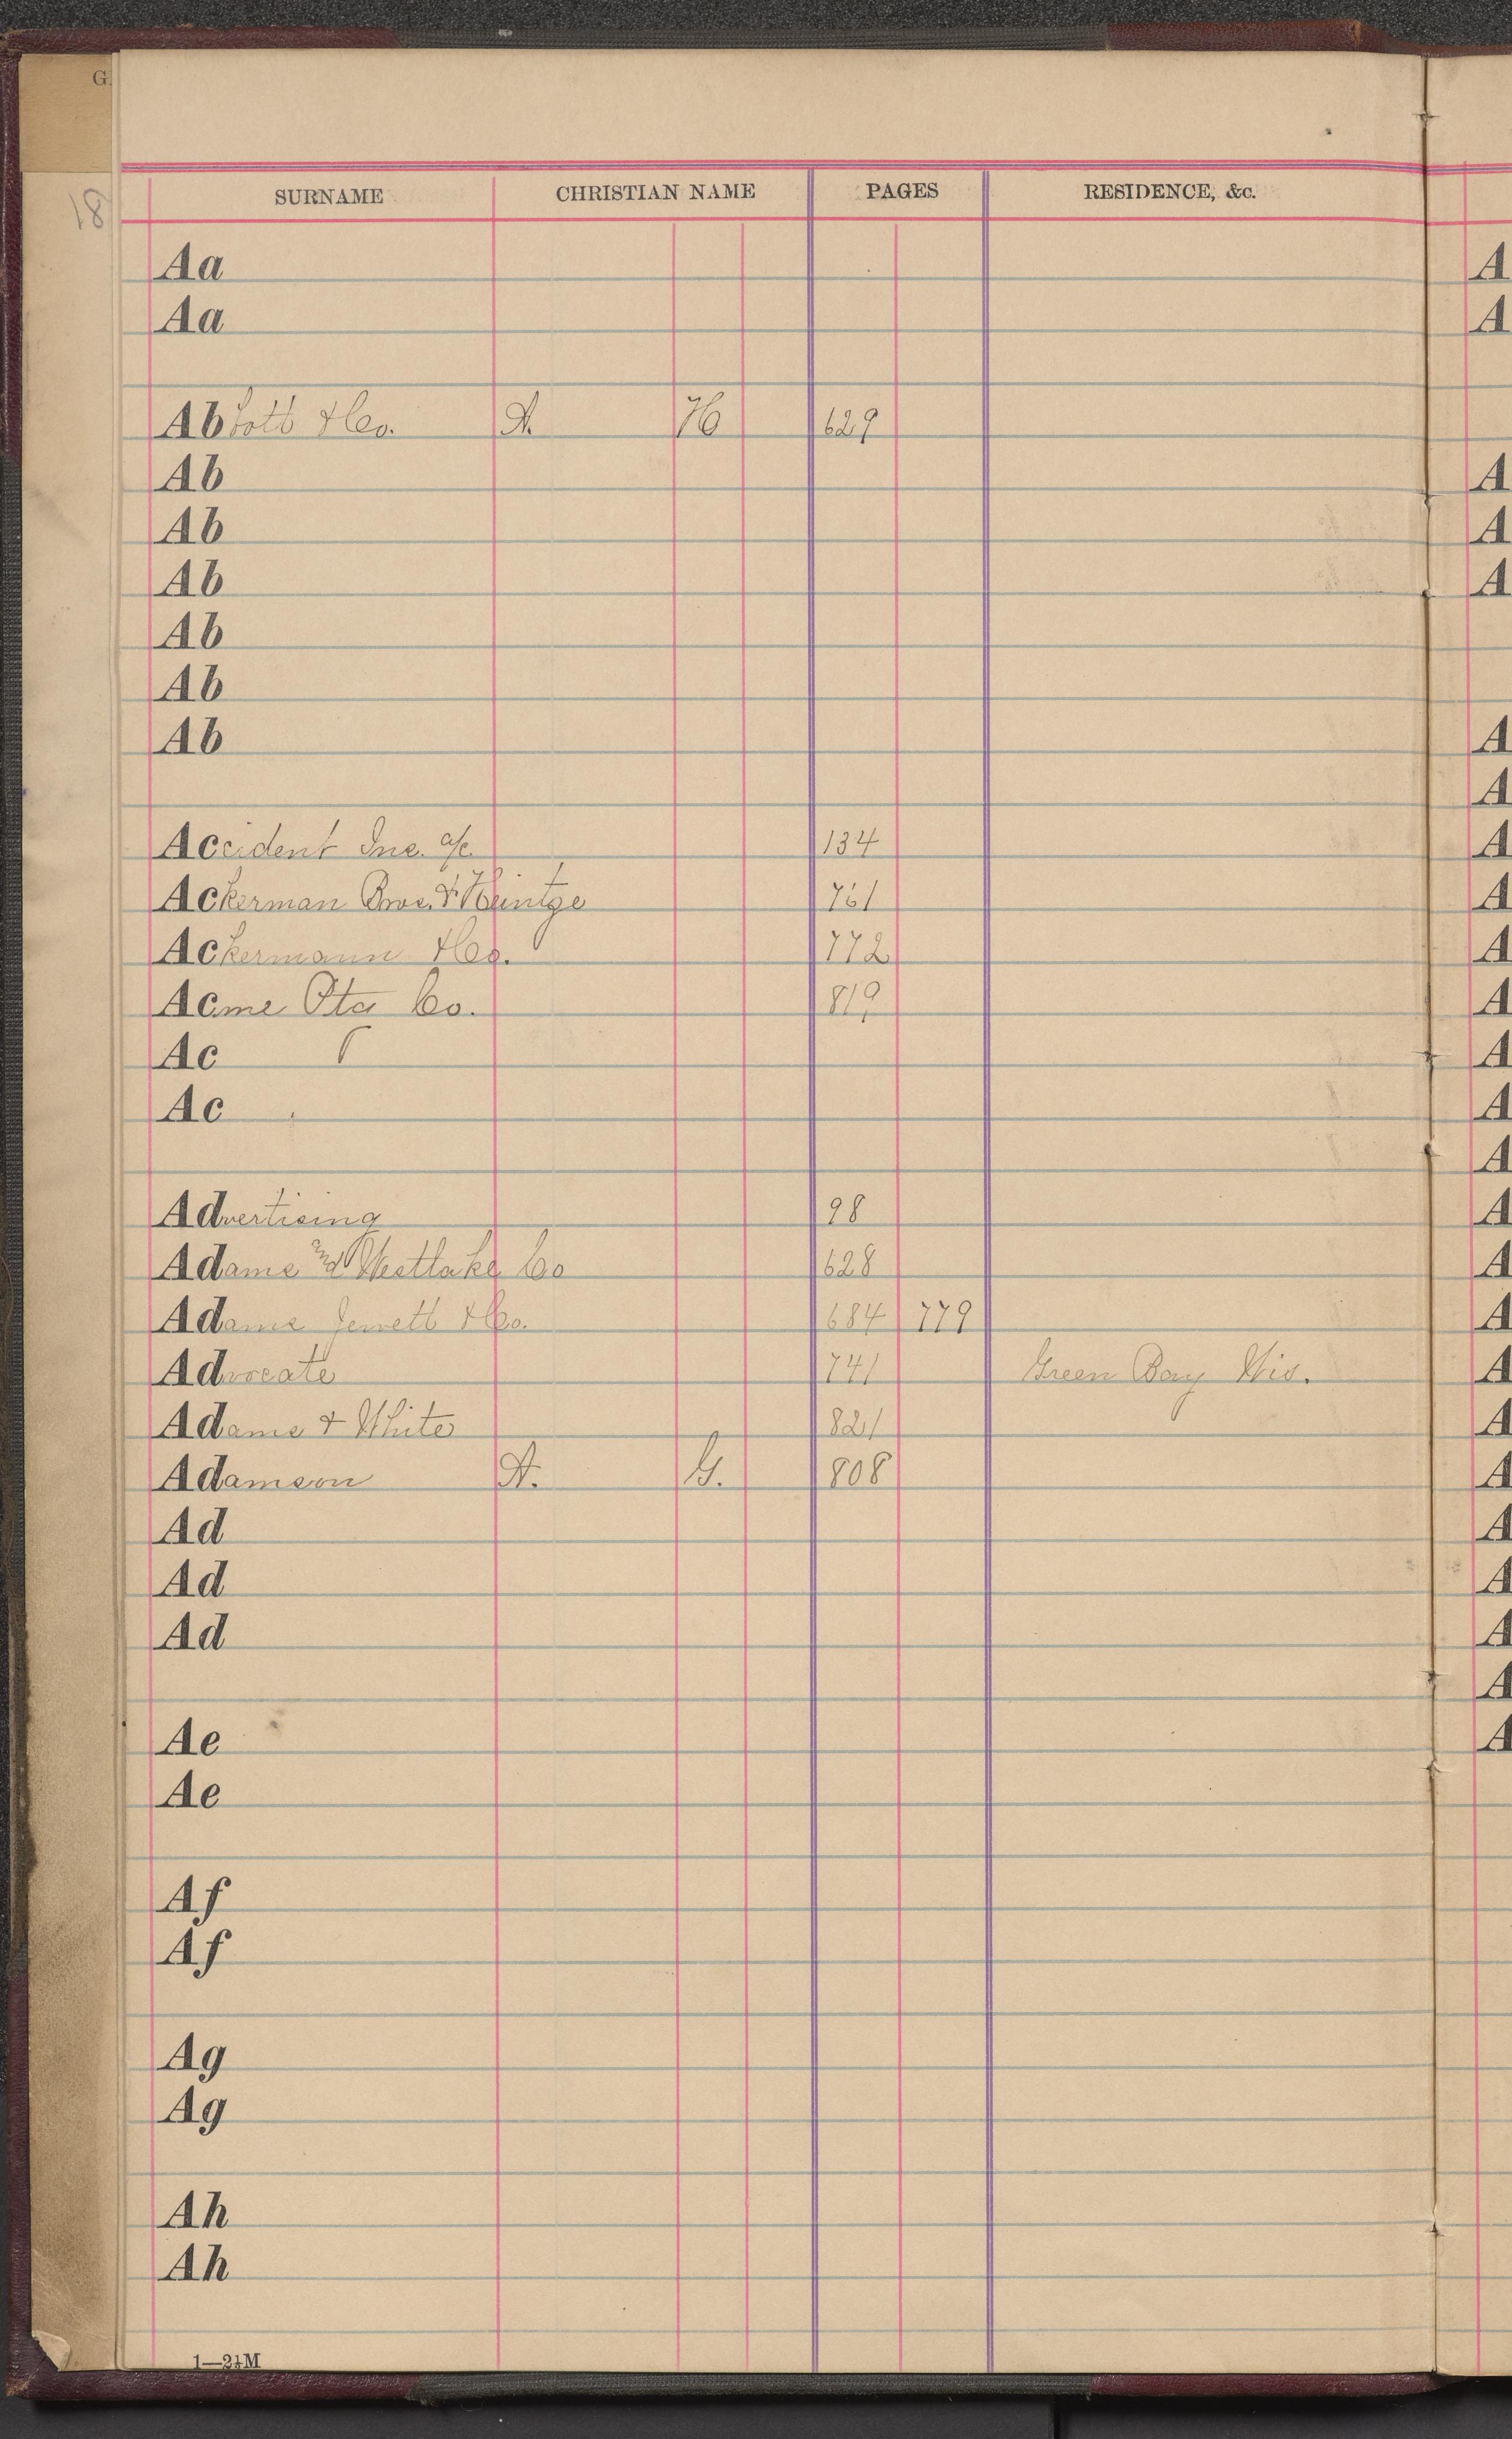 G
18
SURNAME CHRISTIAN NAME PAGES RESIDENCE, &c.
Aa A
Aa A
Abbott & Co. A. H 629
Ab A
Ab A
Ab A
Ab
Ab
Ab A
A
Accident Ins. a/c 134 A
Ackerman Bros. & Heintze 761 A
Ackermann & Co. 772 A
Acme Sta Co. 819 A
Ac A
Ac A
A
Advertising 98 A
Adams & Westlake Co 628 A
Adams Jewett & Co. 684 779 A
Advocate 741 Green Bay Wis. A
Adams & White 821 A
Adamson A. G. 808 A
Ad A
Ad A
Ad A
A
Ae A
Ae
Af
Af
Ag
Ag
Ah
Ah
1—2½M